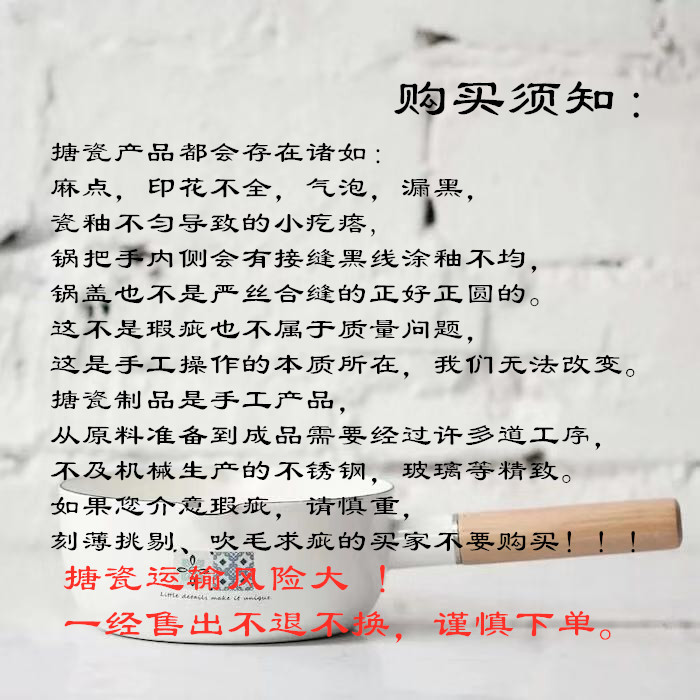 购买须知：
搪瓷产品都会存在诸如：
麻点，印花不全，气泡，漏黑，
瓷釉不匀导致的小疙瘩，
锅把手内侧会有接缝黑线涂釉不均，
锅盖也不是严丝合缝的正好正圆的。
这不是瑕疵也不属于质量问题，
这是手工操作的本质所在，我们无法改变。
搪瓷制品是手工产品，
从原料准备到成品需要经过许多道工序，
不及机械生产的不锈钢，玻璃等精致。
如果您介意瑕疵，请慎重，
刻薄挑剔、吹毛求疵的买家不要购买！！！
搪瓷运输风险大 ！
Little details make it unique.
一经售出不退不换，谨慎下单。